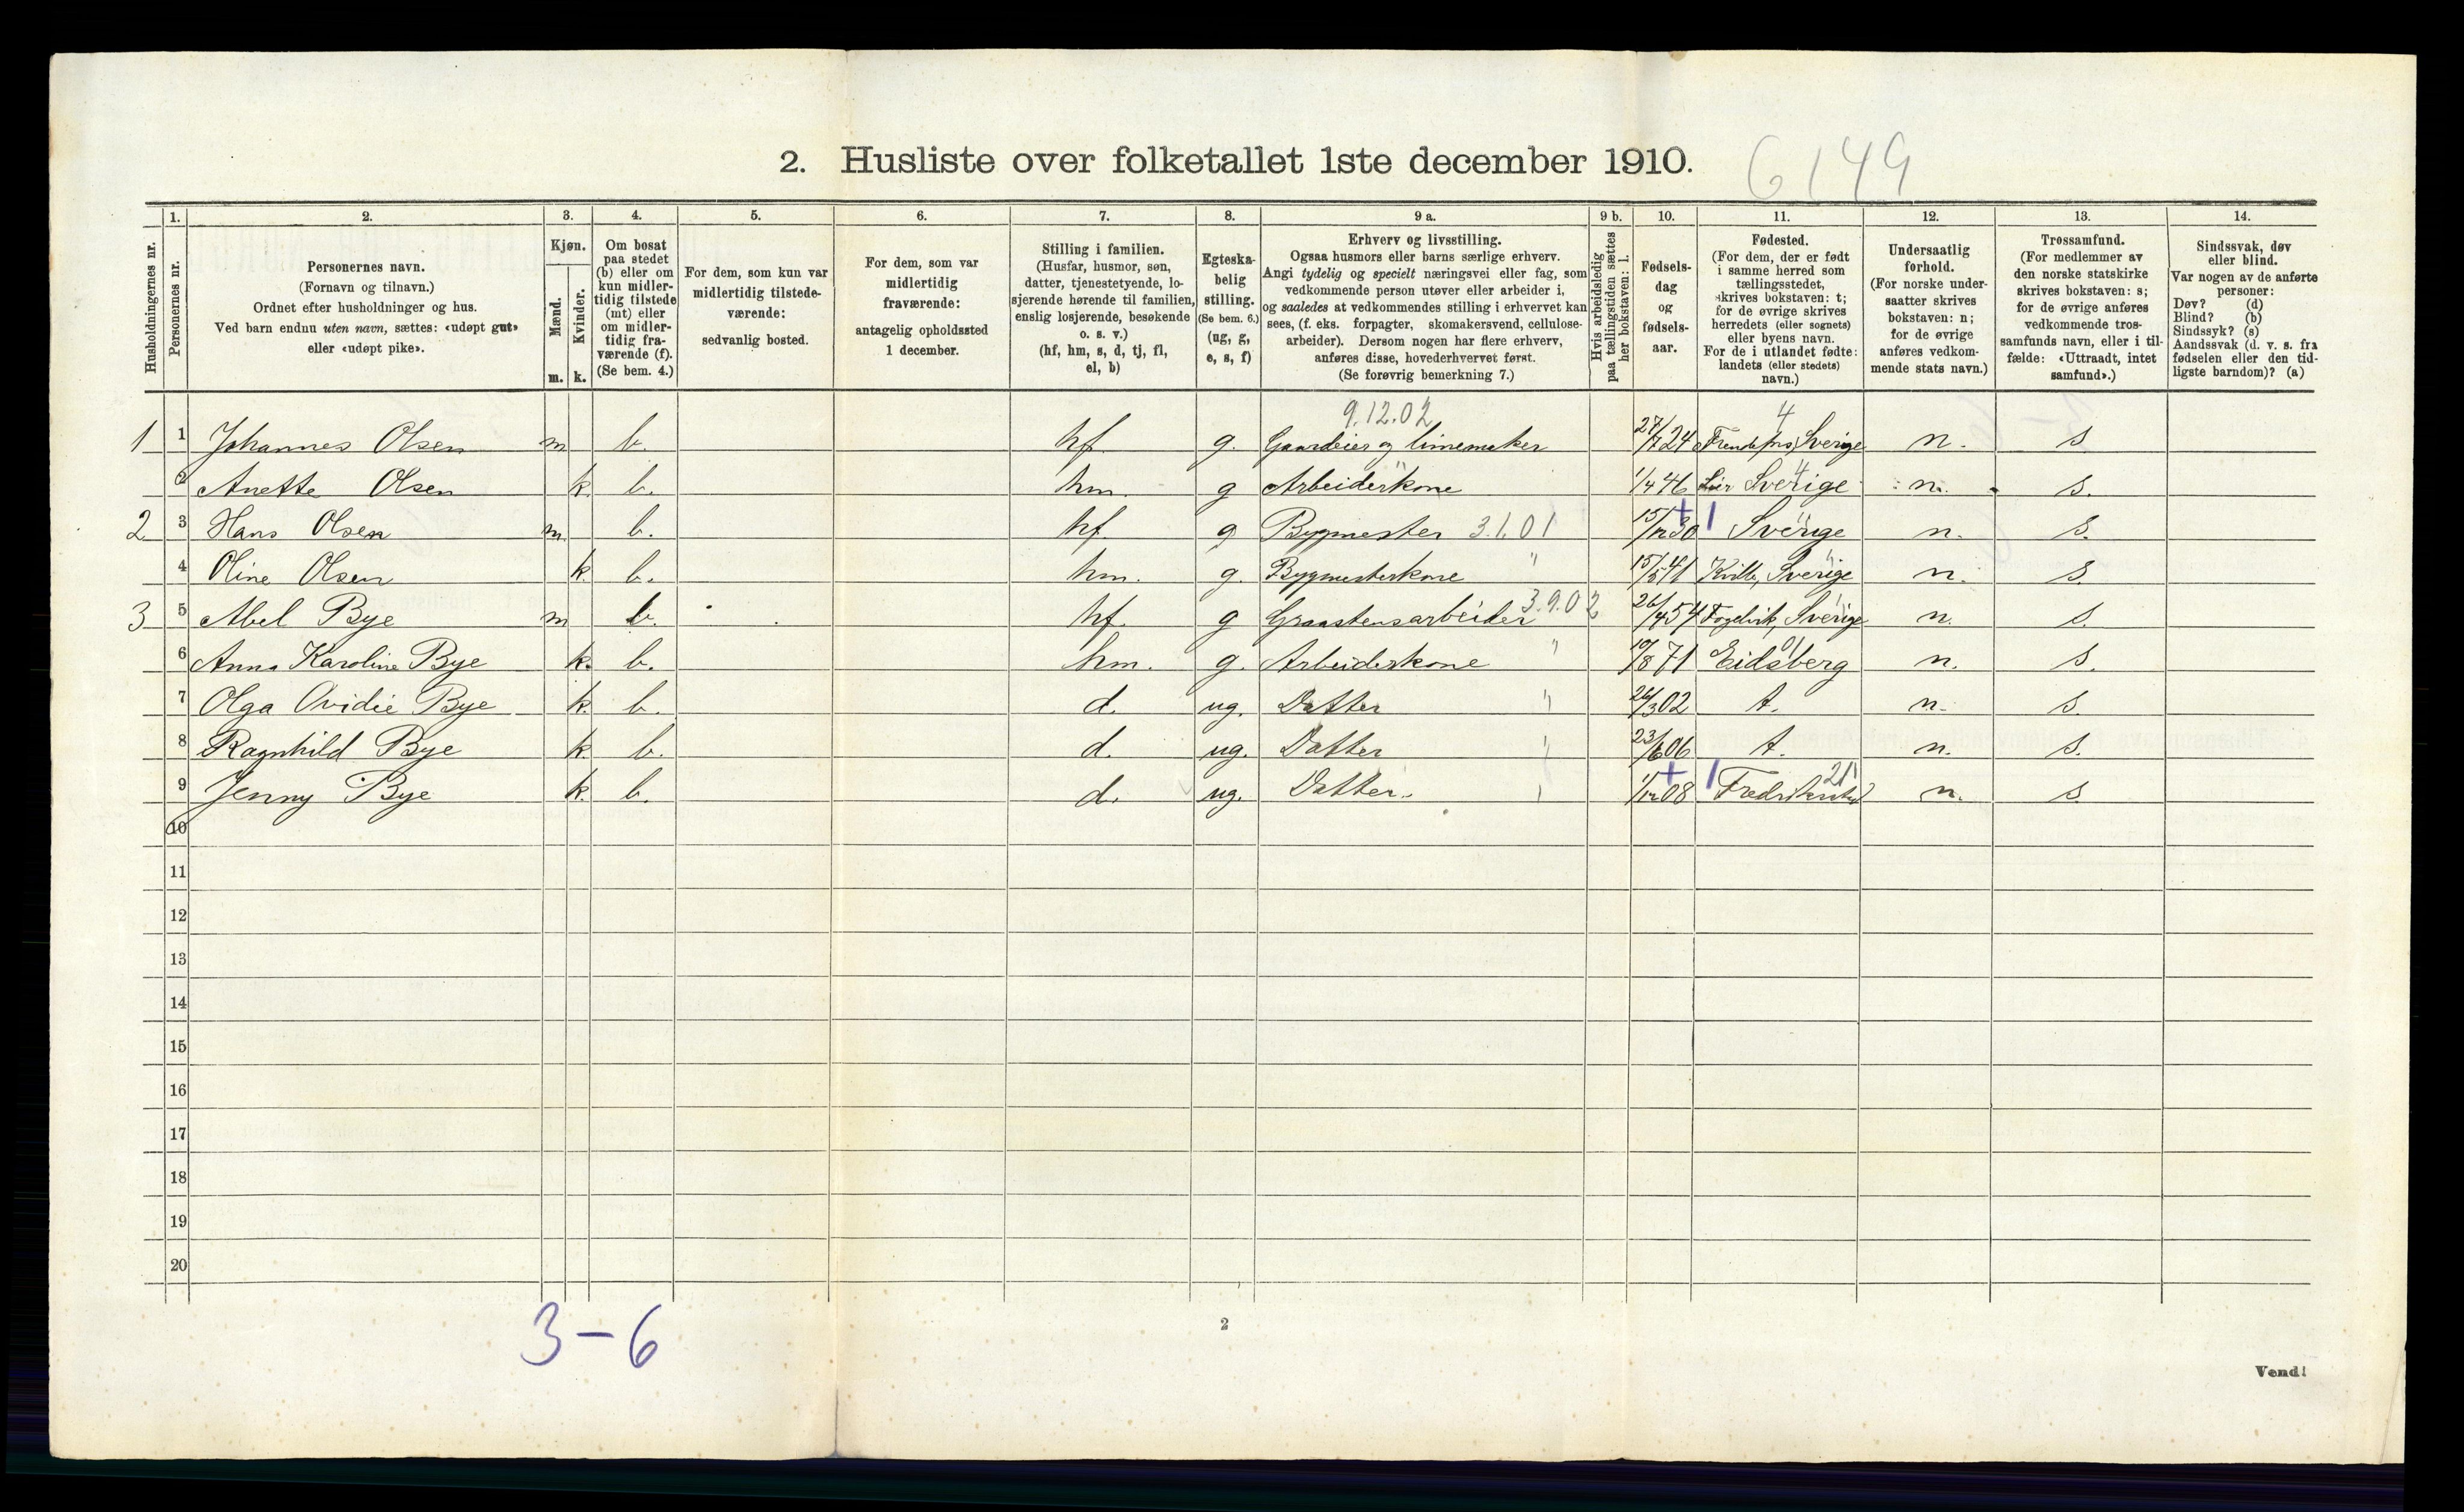 2. Husliste over folketallet 1ste december 1910.
6149
Husholdningernes nr.
1.
Personernes nr.
2.
Personernes navn.
(Fornavn og tilnavn.)
Ordnet efter husholdninger og hus.
Ved barn endnu uten navn, sættes: «udøpt gut»
eller «udøpt pike».
3.
Kjøn.
Mænd.
m.
Kvinder.
k.
4.
Om bosat
paa stedet
(b) eller om
kun midler-
tidig tilstede
(mt) eller
om midler-
tidig fra-
værende (f).
(Se bem. 4.)
5.
For dem, som kun var
midlertidig tilstede-
værende:
sedvanlig bosted.
6.
For dem, som var
midlertidig
fraværende:
antagelig opholdssted
1 december.
7.
Stilling i familien.
(Husfar, husmor, søn,
datter, tjenestetyende, lo-
sjerende hørende til familien,
enslig losjerende, besøkende
o. s. v.)
(hf, hm, s, d, tj, fl,
el, b)
8.
Egteska-
belig
stilling.
(Se bem. 6.)
(ug, g,
e, s, f)
9 a.
Erhverv og livsstilling.
Ogsaa husmors eller barns særlige erhverv.
Angi tydelig og specielt næringsvei eller fag, som
vedkommende person utøver eller arbeider i,
og saaledes at vedkommendes stilling i erhvervet kan
sees, (f. eks. forpagter, skomakersvend, cellulose-
arbeider). Dersom nogen har flere erhverv,
anføres disse, hovederhvervet først.
(Se forøvrig bemerkning 7.)
9 b.
Hvis arbeidsledig
paa tællingstiden sættes
her bokstaven: l.
10.
Fødsels-
dag
og
fødsels-
aar.
11.
Fødested.
(For dem, der er født
i samme herred som
tællingsstedet,
skrives bokstaven: t;
for de øvrige skrives
herredets (eller sognets)
eller byens navn.
For de i utlandet fødte:
landets (eller stedets)
navn.)
12.
Undersaatlig
forhold.
(For norske under-
saatter skrives
bokstaven: n;
for de øvrige
anføres vedkom-
mende stats navn.)
13.
Trossamfund.
(For medlemmer av
den norske statskirke
skrives bokstaven: s;
for de øvrige anføres
vedkommende tros-
samfunds navn, eller i til-
fælde: «Uttraadt, intet
samfund».)
14.
Sindssvak, døv
eller blind.
Var nogen av de anførte
personer:
Døv? (d)
Blind? (b)
Sindssyk? (s)
Aandssvak (d. v. s. fra
fødselen eller den tid-
ligste barndom)? (a)
9.12.02 4
1 1 Johannes Olsen m b. hf. g. Gaardeier og limemaker 27/7 24 Sverige n. s
2 Anette Olsen k. b. hm. g Arbeiderkone " 1/4 46 Sverige 4 n. s.
2 3 Hans Olsen m b. hf. g Bygmester 3.1.01 15/12 30 + 1 Sverige " n. s.
4 Oline Olsen k. b. hm. g. Bygmesterkone " 15/5 41 Kville, Sverige " n. s.
3 5 Abel Bye m b. hf. g Graastensarbeider 3.9.02 26/4 54 Fogelvik, Sverige n. s.
6 Anna Karoline Bye k. b. hm. g. Arbeiderkone " 10/8 71 Eidsberg 01 n. s.
7 Olga Ovidie Bye k. b. d. ug. Datter " 26/3 02 t. n. s.
8 Ragnhild Bye k. b. d. ug. Datter " 23/6 06 t. n. s.
9 Jenny Bye k. b. d. ug. Datter. " 1/12 08 + 1 Fredrikstad 21 n. s
10
11
12
13
14
15
16
17
18
19
20
3-6
2
Vend!